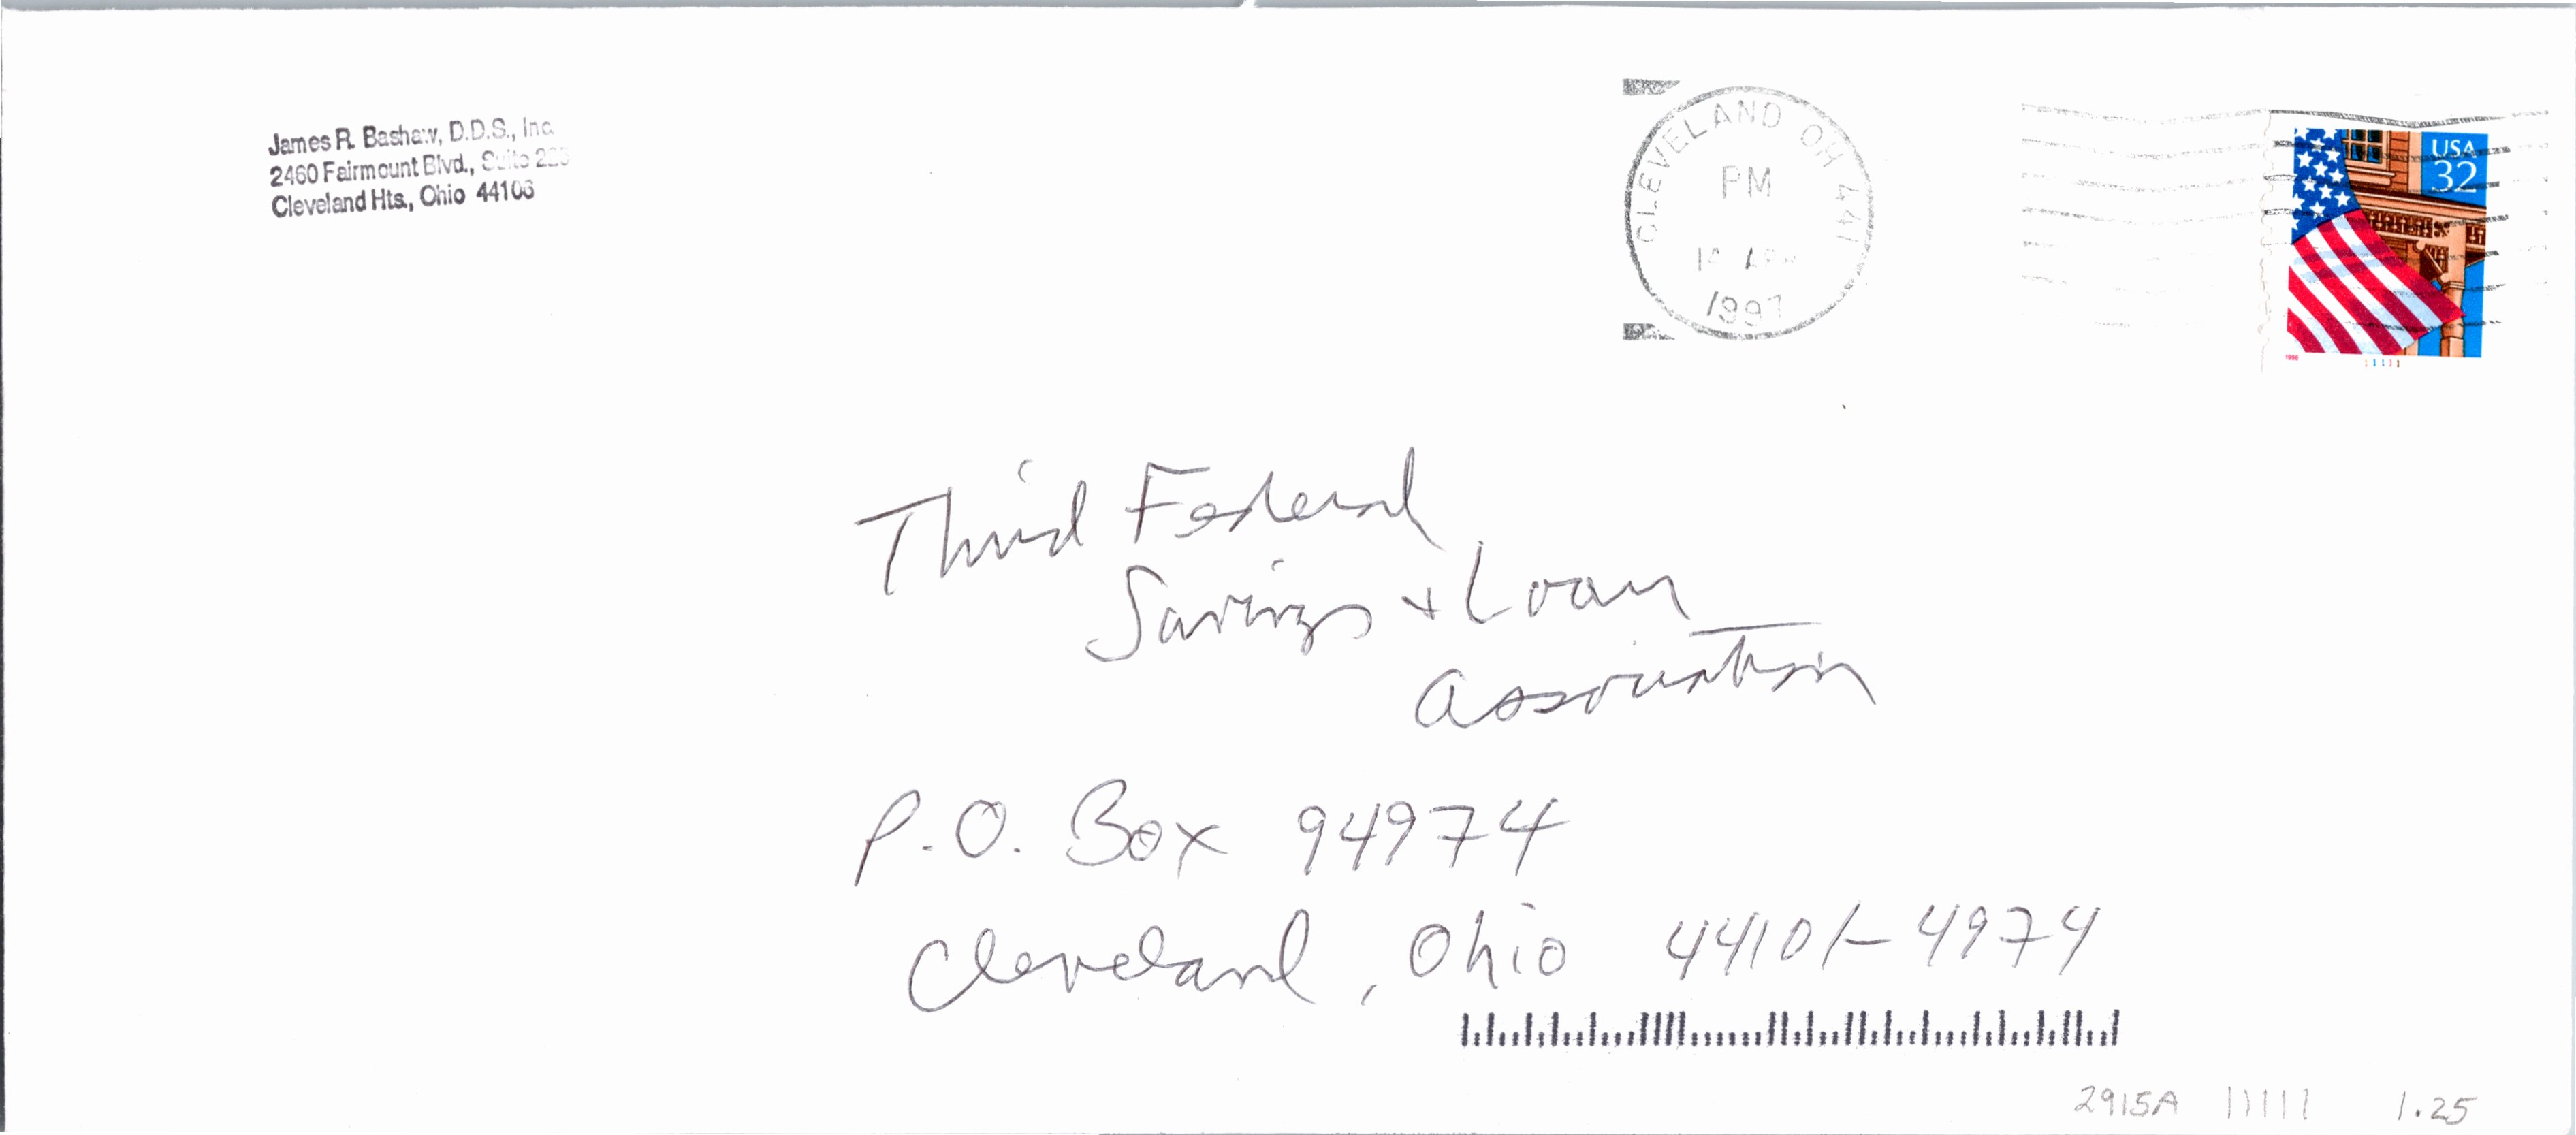 James R. Bashaw, D.D.S., Inc.
2460 Fairmount Blvd., Suite
Cleveland Hts., Ohio 44106
CLEVELAND OH 441
PM
1997
USA
32
1996
11111
Third Federal
Savings + Loan
Association
P.O. Box 94974
Cleveland, Ohio 44101-4974
2915A 11111 1.25